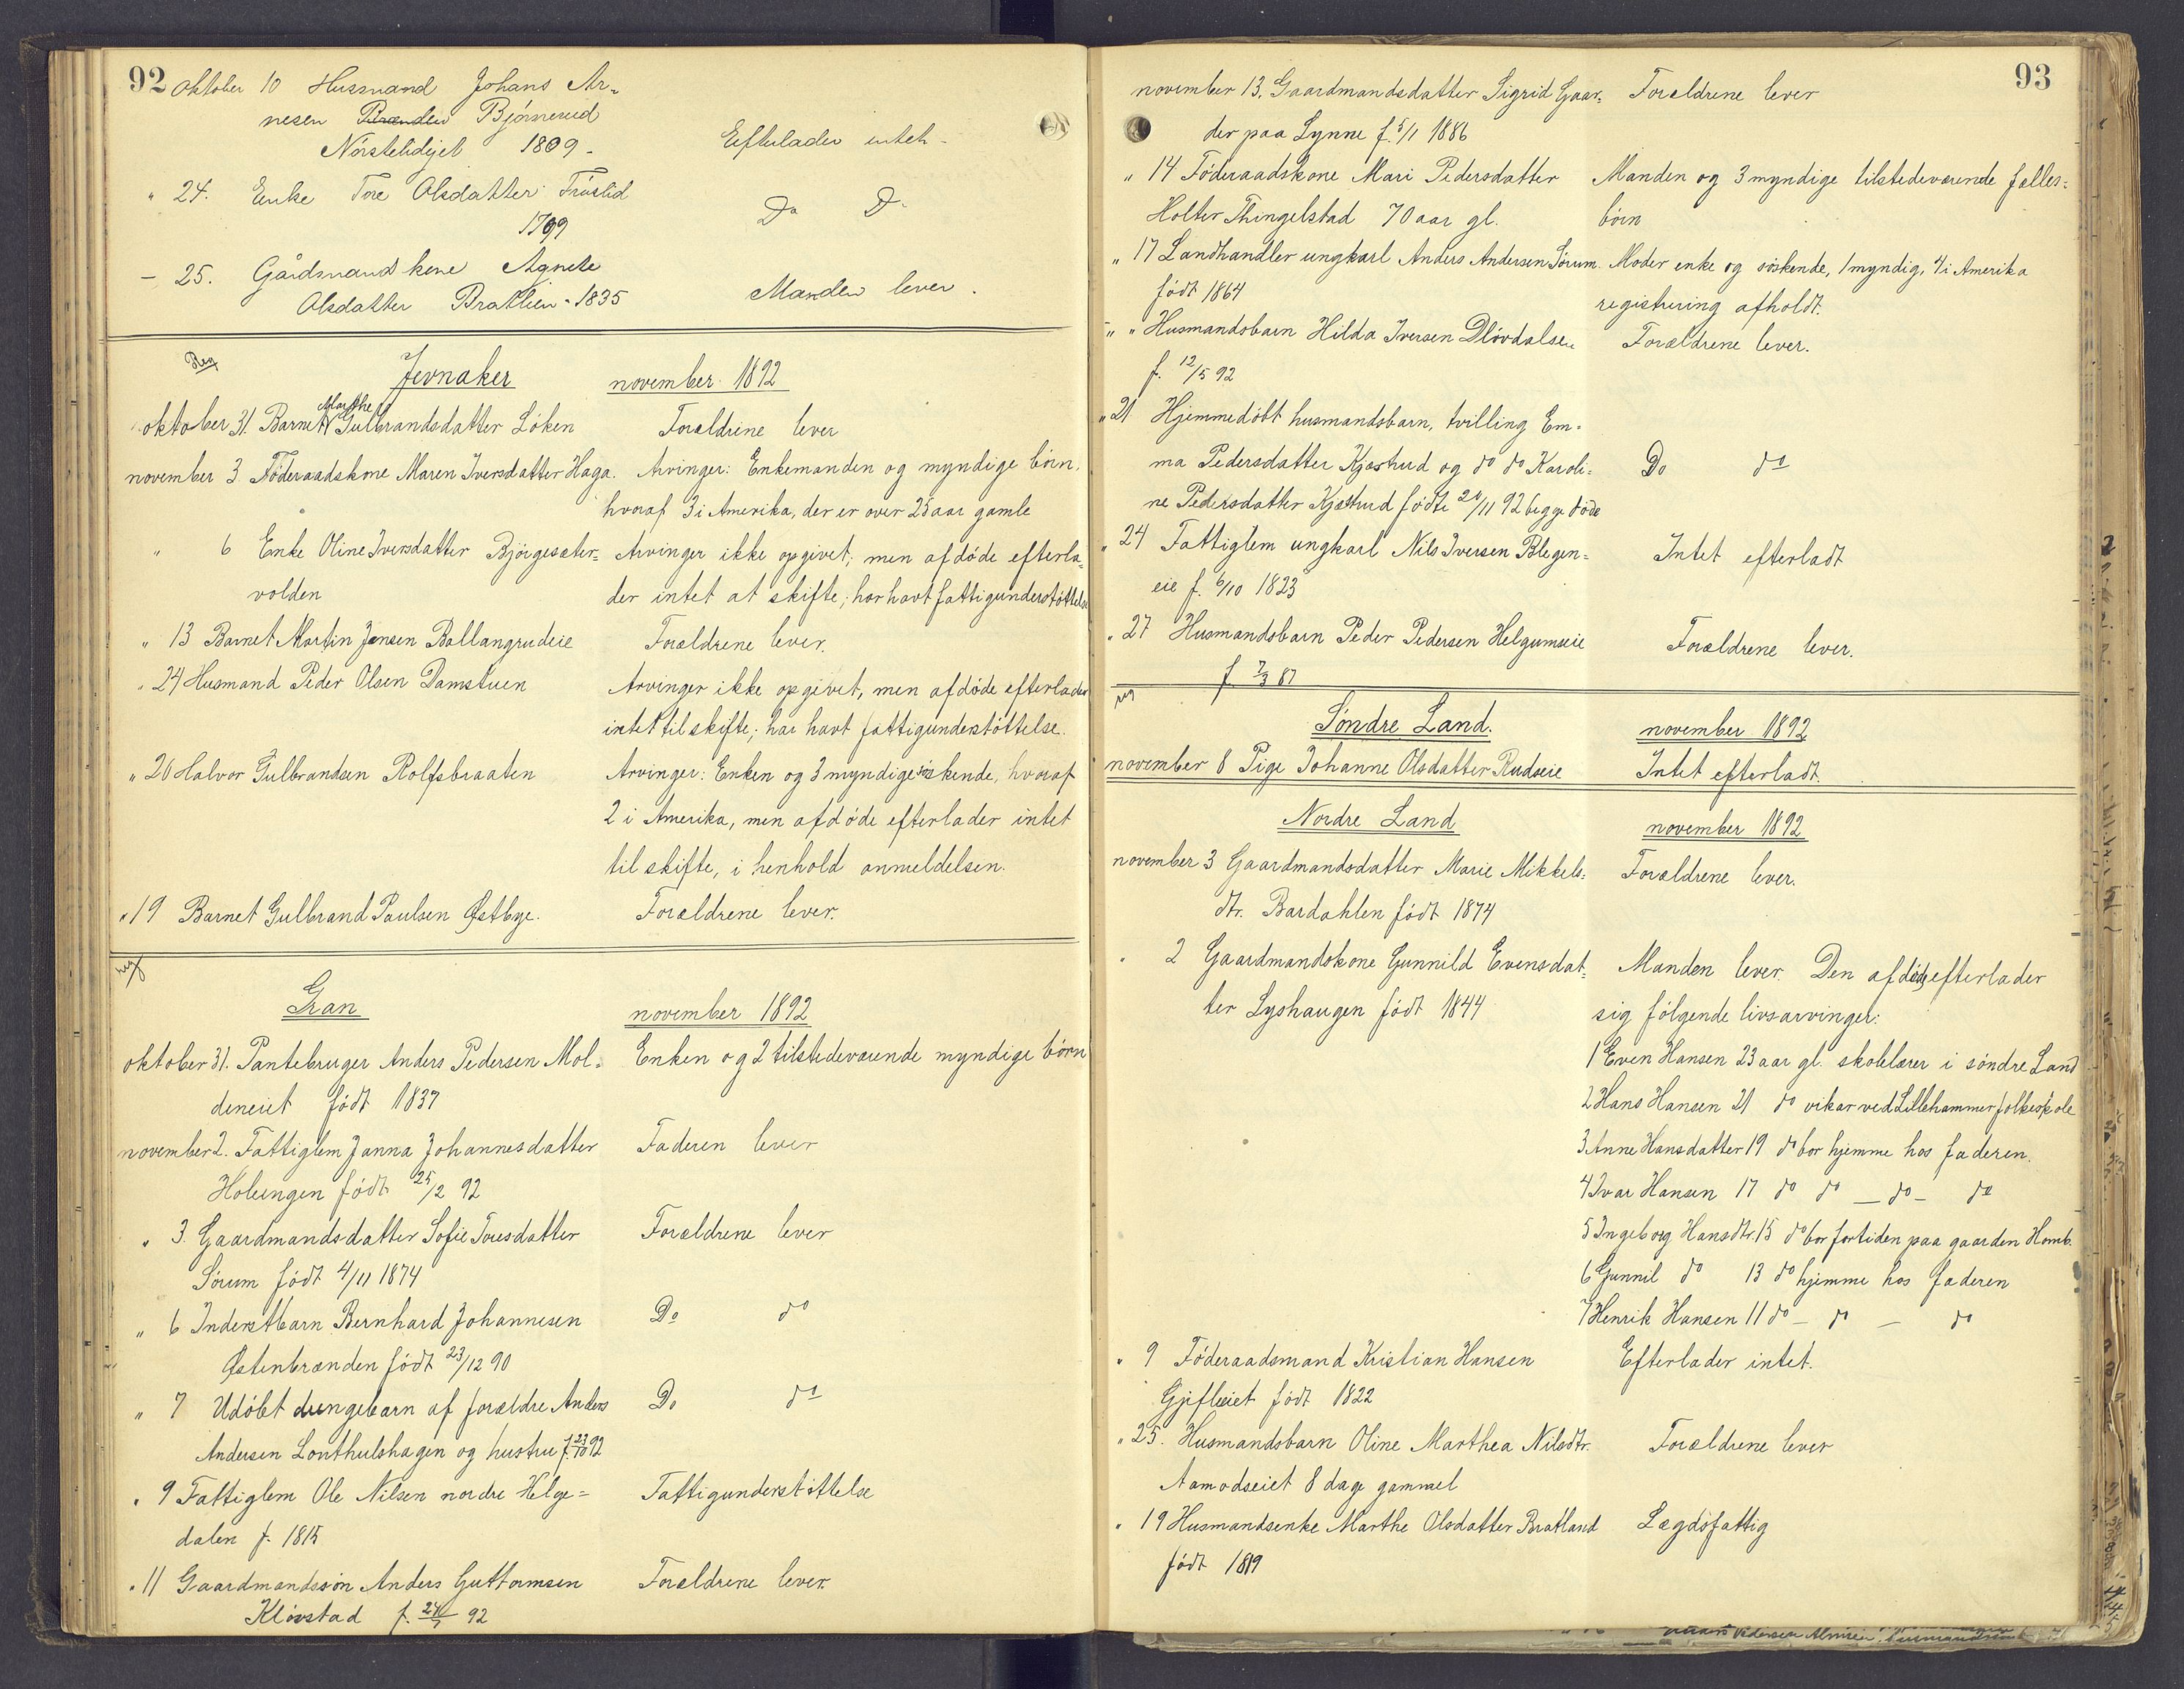 92 oktober 10 Husmand Johans Ar-
nesen Brænden Bjørnerud
1809 - Efterlader intet -
" 24. Enke Tore Olsdatter
1799 Do Do
- 25. Gårdmandskone Agnete
Olsdatter Bratlien - 1835 Manden lever.
Reg
Jevnaker november 1892
oktober 31. Barnet Marthe Gulbrandsdatter Löken Forældrene lever
november 3 Föderaadskone Maren Iversdatter Haga. Arvinger: Enkemanden og myndige börn,
hvoraf 3 i Amerika, der er over 25 aar gamle
" 6 Enke Oline Iversdatter Björgesæter- Arvinger ikke opgivet, men afdöde efterla-
volden der intet at skifte; har havt fattigunderstöttelse
" 13 Barnet Martin Jensen Ballangrudeie Forældrene lever.
" 24 Husmand Peder Olsen Damstuen Arvinger ikke opgivet, men afdöde efterlader
intet til skifte; har havt fattigunderstöttelse.
" 20 Halvor Gulbrandsen Rolfsbraaten Arvinger: Enken og 3 myndige söskende, hvoraf
2 i Amerika, men afdöde efterlader intet
til skifte, i henhold anmeldelsen.
" 19 Barnet Gulbrand Paulsen Østbye. Forældrene lever.
reg
Gran november 1892
oktober 31. Pantebruger Anders Pedersen Mol- Enken og 2 tilstedeværende myndige börn
deneiet födt 1837
november 2. Fattiglem Janna Johannesdatter Faderen lever
Holeengen födt 25/2 92
" 3. Gaardmandsdatter Sofie Toresdatter Forældrene lever
Sörum födt 4/11 1874
" 6 Inderstbarn Bernhard Johannesen Do do
Østenbrænden födt 23/12 90
" 7 Udöbt drengebarn af forældre Anders Do do
Andersen Lonthulshagen og hustru f. 23/10 92
" 9 Fattiglem Ole Nilsen nordre Helge= Fattigunderstöttelse
dalen f. 1815
" 11 Gaardmandssön Anders Guttormsen Forældrene lever.
Klövstad f. 24/7 92
93
november 13. Gaardmandsdatter Sigrid Gaar= Forældrene lever
der paa Lynne f. 5/11 1886
" 14 Föderaadskone Mari Pedersdatter Manden og 3 myndige tilstedeværende fælles=
Holter Thingelstad 70 aar gl. börn
" 17 Landhandler ungkarl Anders Andersen Sörum. Moder enke og söskende, 1 myndig, 4 i Amerika
födt 1864 registrering afholdt.
" " Husmandsbarn Hilda Iversen Dlövdalsen Forældrene lever.
f. 12/5 92
" 21 Hjemmedöbt husmandsbarn, tvilling Em=
ma Pedersdatter Kjæstrud og do do Karoli= Do do
ne Pedersdatter Kjæstrud födte 20/11 92 begge döde
" 24 Fattiglem ungkarl Nils Iversen Blegen= Intet efterladt
eie f. 6/10 1823
" 27 Husmandsbarn Peder Pedersen Helgumseie Forældrene lever.
f. 7/3 87
reg
Söndre Land. november 1892
november 8 Pige Johanne Olsdatter Rudseie Intet efterladt.
Nordre Land november 1892
november 3 Gaardmandsdatter Marie Mikkels= Forældrene lever.
dtr. Bardahlen födt 1874
" 2 Gaardmandskone Gunnild Evensdat= Manden lever. Den afdöde efterlader
ter Lyshaugen födt 1844 sig fölgende livsarvinger:
1 Even Hansen 23 aar gl. skolelærer i söndre Land
2 Hans Hansen 21 do vikar ved Lillehammer folkeskole
3 Anne Hansdatter 19 do bor hjemme hos faderen.
4 Ivar Hansen 17 do do - do - do
5 Ingeborg Hansdtr. 15 do bor fortiden paa gaarden Homb.
6 Gunnil do 13 do hjemme hos faderen
7 Henrik Hansen 11 do - do - do
" 9 Föderaadsmand Kristian Hansen Efterlader intet.
Gjefleiet födt 1822
" 25. Husmandsbarn Oline Marthea Nilsdtr. Forældrene lever
Aamodseiet 8 dage gammel
" 19 Husmandsenke Marthe Olsdatter Bratland Lægdsfattig
födt 1819